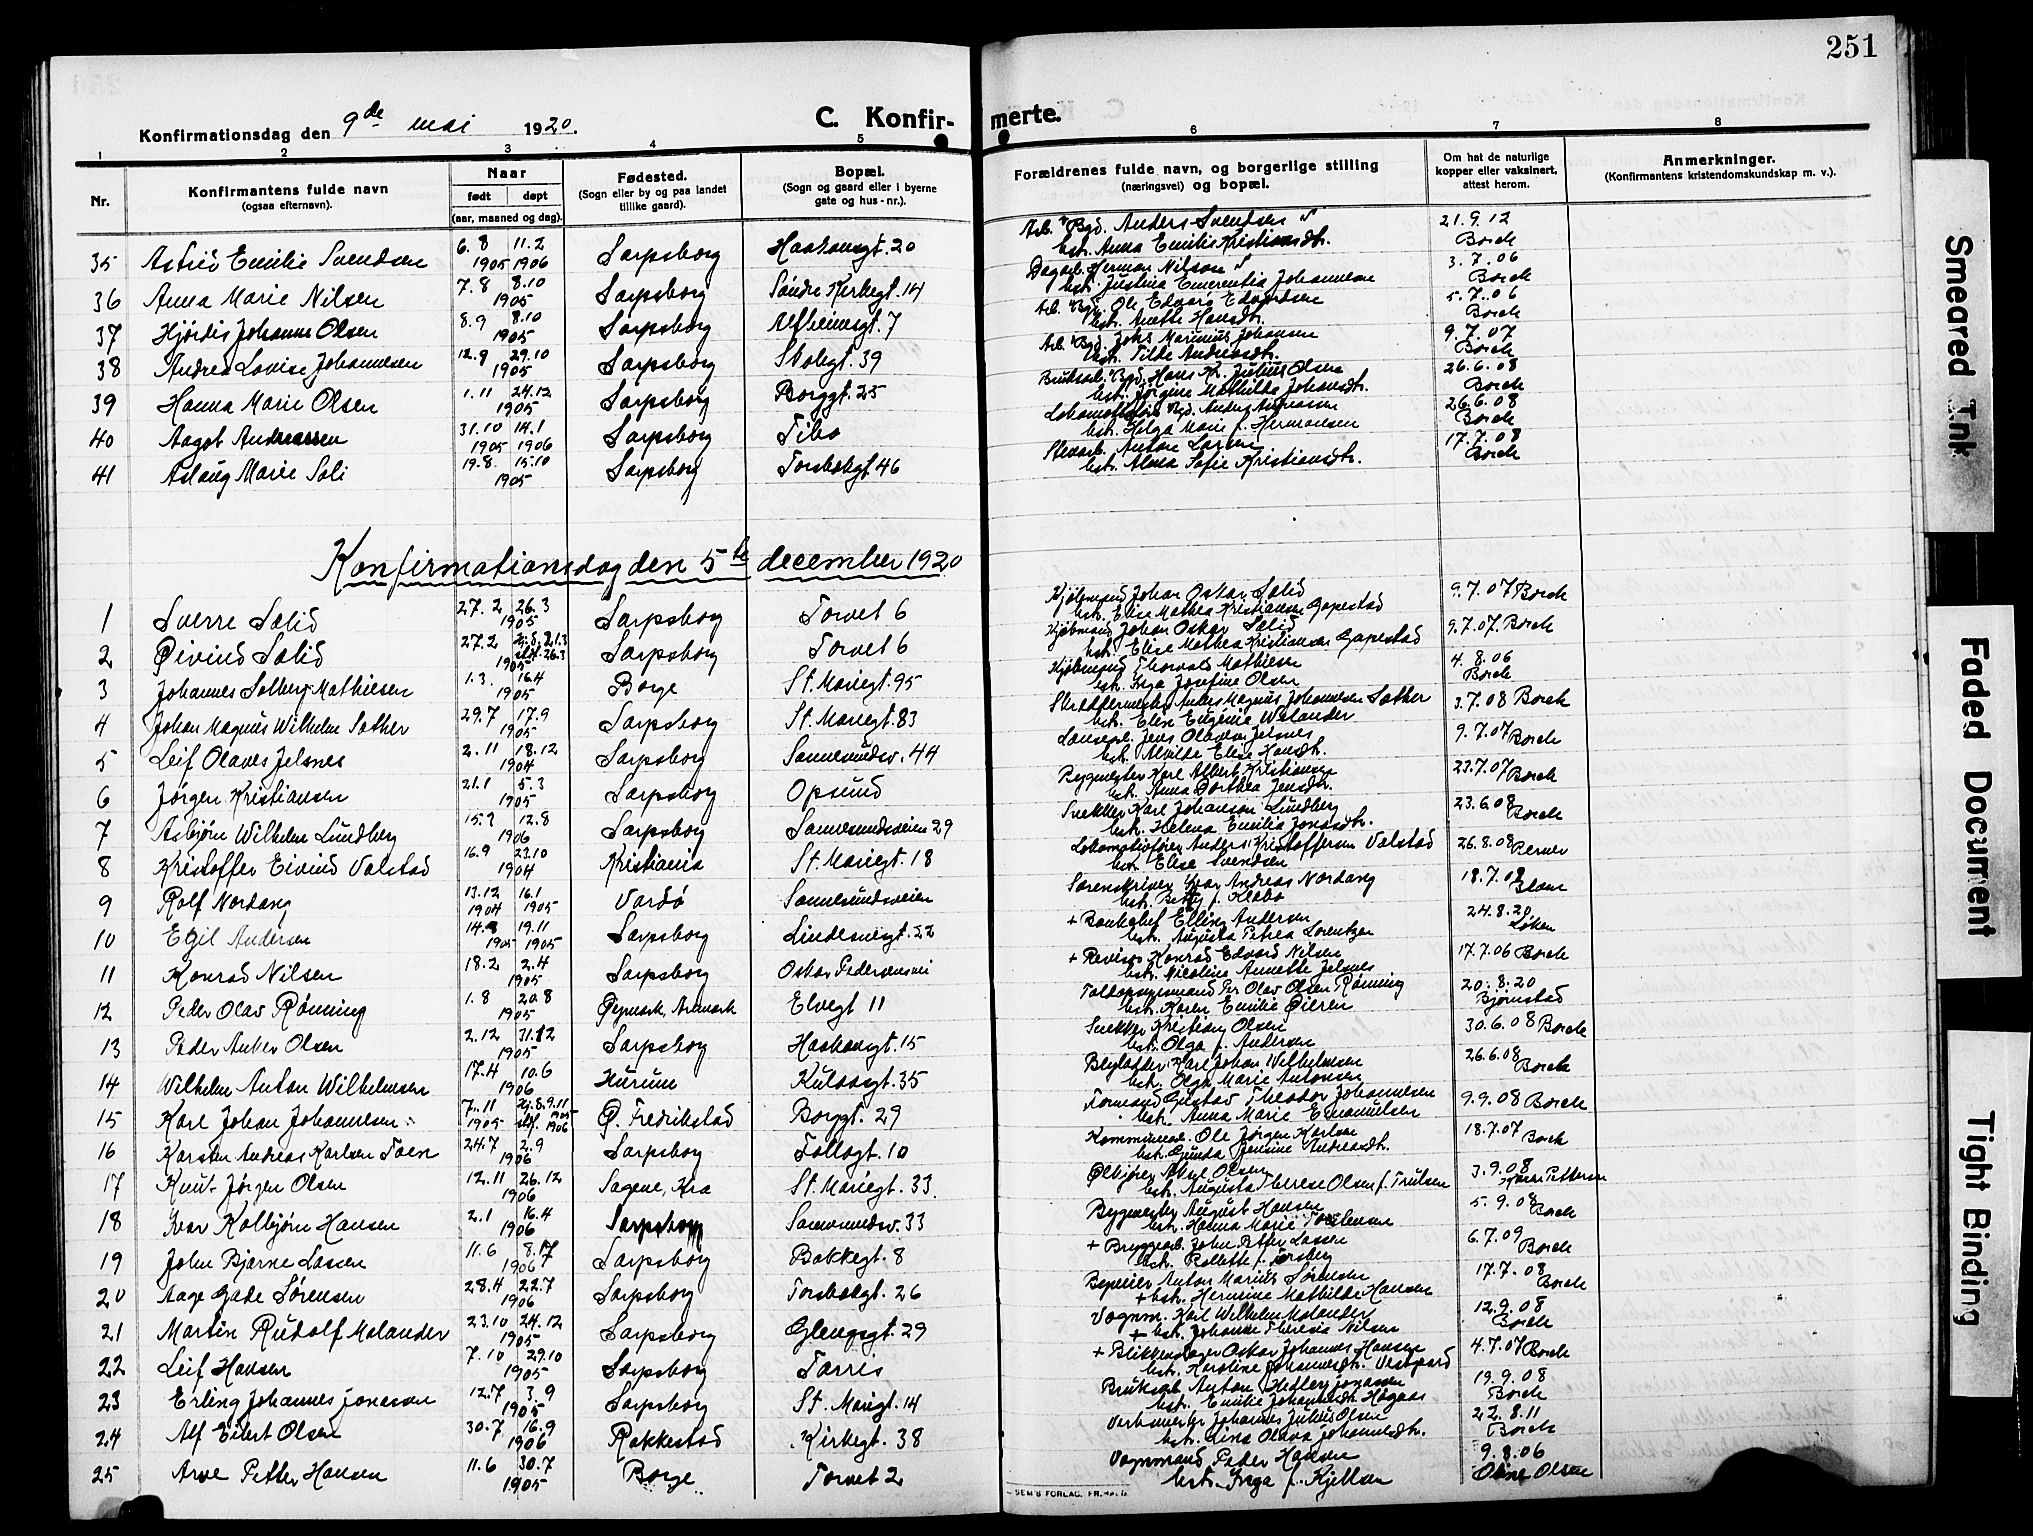 251
Konfirmationsdag den 9de mai 1920.
C. Konfirmerte.
1 2 3 4 5 6 7 8
Nr.
Konfirmantens fulde navn
(ogsaa efternavn).
Naar
født døpt
(aar, maaned og dag).
Fødested.
(Sogn eller by og paa landet
tillike gaard).
Bopæl.
(Sogn og gaard eller i byerne
gate og hus-nr.).
Forældrenes fulde navn, og borgerlige stilling
(næringsvei) og bopæl.
Om hat de naturlige
kopper eller vaksinert,
attest herom.
Anmerkninger.
(Konfirmantens kristendomskundskap m. v.).
35 Astrid Emilie Svendsen 6.8 1905 11.2 1906 Sarpsborg Haakonsgt. 20 Arb. Bgd. Anders Svendsen 21.9.12
hstr. Anna Emilie Kristiansdtr. Borch
36 Anna Marie Nilsen 7.8 8.10 1905 Sarpsborg Søndre Kirkegt. 14 Dagarb. Herman Nilsen 3.7.06
hstr. Justina Emerentia Johannesen Borch
37 Hjørdis Johanne Olsen 8.9 8.10 1905 Sarpsborg Alfheimsgt. 7 Arb. Bgd. Ole Edvard Edvardsen 5.7.06
hstr. Anette Hansdtr. Borch
38 Andrea Lovise Johannesen 12.9 29.10 1905 Sarpsborg Skolegt. 39 Arb. Bgd. Johs Marinius Johansen 9.7.07
hstr. Tilde Andreasdtr. Borch
39 Hanna Marie Olsen 1.11 24.12 1905 Sarpsborg Borggt. 25 Bruksarb. Bgd. Hans Kr. Julius Olsen 26.6.08
hstr. Jørgine Mathilda Johansdtr. Borch
40 Aagot Andreassen 31.10 1905 14.1 1906 Sarpsborg Tibo Bgd. Anders Andreassen 26.6.08
hstr. Helga Marie f. Hermansen Borch
41 Aslaug Marie Soli 19.8. 15.10 1905 Sarpsborg Torsbekgt 46 Stenarb. Anton Larsen 17.7.08
hstr. Alma Sofie Kristiansdtr. Borch
Konfirmationsdag den 5te december 1920
1 Sverre Sælid 27.2 26.3 1905 Sarpsborg Torvet 6 Kjøbmand Johan Oskar Sælid 9.7.07 Borch
hstr. Elise Mathea Kristiansen Gapestad
2 Øivind Sælid 27.2 1905 26.3 Sarpsborg Torvet 6 Kjøbmand Johan Oskar Sælid 9.7.07. Borch
hstr. Elise Mathea Kristiansen Gapestad
3 Johannes Solberg Mathiesen 1.3. 16.4 1905 Borge St. Mariegt. 95 Kjøbmand Thorvald Mathiesen 4.8.06
hstr. Inga Josefine Olsen Borch
4 Johan Magnus Wilhelm Sæther 29.7 17.9 1905 Sarpsborg St. Mariegt. 83 Skræddermester Anders Magnus Johannesen Sæther 3.7.08 Borch
hstr. Elise Eugénia Welander
5 Leif Olaves Jelsnes 2.11 18.12 1904 Sarpsborg Sannesundsv. 44 Jens Olavsen Jelsnes 9.7.07 Borch
hstr. Alvilde Elise Hansdtr.
6 Jørgen Kristiansen 21.1 5.3 1905 Sarpsborg Opsund Bygmester Karl Albert Kristiansen 23.7.07 Borch
hstr. Anna Dorthea Jensdtr.
7 Asbjørn Wilhelm Lundberg 12.8 1906 Sarpsborg Sannesundsveien 29 Snekker Karl Johansen Lundberg 23.6.08 Borch
hstr. Helena Emilia Jonasdtr.
8 Kristoffer Eivind Valstad 16.9 23.10 1904 Kristiania St. Mariegt. 18 Lokomotivfører Anders Kristoffersen Valstad 26.8.08 Berner
hstr. Elise Svendsen
9 Rolf Nordang 13.12 1904 16.1 1905 Vardø Sannesundsveien Sorenskriver Ivar Andreas Nordang 18.7.08
hstr. Betzy f. Klæbo
10 Egil Andersen 14.9 1905 19.11 1905 Sarpsborg Lindesnesgt. 22 + Bankchef Elling Andersen 24.8.20
hstr. Augusta Petrea Lorentzen Løken
11 Konrad Nilsen 18.2 2.4 1905 Sarpsborg Oskar Pedersensvei + Revisor Konrad Edvard Nilsen 17.7.06 Borch
hstr. Nicoline Annette Jelsnes
12 Peder Olav Rønning 1.8 20.8 1905 Øymark, Aremark Elvegt 11 Toldopsynsmand Per Olav Olsen Rønning 20.8.20
hstr. Karen Emilie Øieren Bjørnstad
13 Peder Anker Olsen 2.12 31.12 1905 Sarpsborg Haakonsgt. 15 Snekker Kristian Olsen 30.6.08 Borch
hstr. Olga f. Andersen
14 Wilhelm Anton Wilhelmsen 17.4 10.6 1906 Hurum Kulaasgt. 35 Karl Johan Wilhelmsen 26.6.08 Borch
hstr. Olga Marie Antonsen
15 Karl Johan Johannesen 7.11 1905 Hj.d. 9.11 1905 stf. 1906 Ø. Fredrikstad Borggt. 29 Formand Gustav Theodor Johannesen 9.9.08 Borch
hstr. Anna Marie Emanuelsen
16 Karsten Andreas Karlsen Toen 24.7 2.9 1906 Sarpsborg Tollogt. 10 Kommunearb. Ole Jørgen Karlsen 18.7.07 Borch
hstr. Gunda Jensine Andreasdtr.
17 Knut Jørgen Olsen 12.11 26.12 1906 Sagene, Kra St. Mariegt. 33 Ølkjører Aksel Olsen 3.9.08
hstr. Augusta Therese Olsen f. Trulsen Pettersen
18 Ivar Kolbjørn Hansen 2.1 16.4 1906 Sarpsborg Sannesundsv. 33 Bygmester August Hansen 5.9.08 Borch
hstr. Hanna Marie
19 John Bjarne Lassen 11.6 8.17 1906 Sarpsborg Bakkegt. 8 + Bryggearb. John Petter Lassen 6.7.09 Borch
hstr. Rollette f.
20 Aage Gade Sørensen 28.4 22.7 1906 Sarpsborg Torsbekgt. 26 Anton Marius Sørensen 17.7.08
+ hstr. Hermine Mathilde Hansen Borch
21 Martin Rudolf Molander 23.10 24.12 1905 Sarpsborg Glengsgt. 29 Vognm. Karl Wilhelm Molander 12.9.08
+ hstr. Johanne Theresia Nilsen Borch
22 Leif Hansen 7.10 29.10 1905 Sarpsborg Torris + Blikkenslager Oskar Johannes Hansen 4.7.07 Borch
hstr. Karoline Johannesdtr. Vestgaard
23 Erling Johannes Jonassen 12.7 3.9 1905 Sarpsborg St. Mariegt. 14 Bruksarb. Anton Hedley Jonassen 19.9.08
hstr. Emilie Johannesdtr. Høgaas Borch
24 Alf Eilert Olsen 30.7 16.9 1906 Rakkestad Kirkegt. 38 Verksmester Johannes Julius Olsen 22.8.11
hstr. Lina Olava Johannesdtr. Borch
25 Arve Petter Hansen 11.6 30.7 1905 Borge Torvet 2 Vognmand Peder Hansen 9.8.06
hstr. Inga f. Kjelsen Oline Olsen
SEM'S FORLAG, FR.HALD.
Smeared Ink
Faded Document
Tight Binding